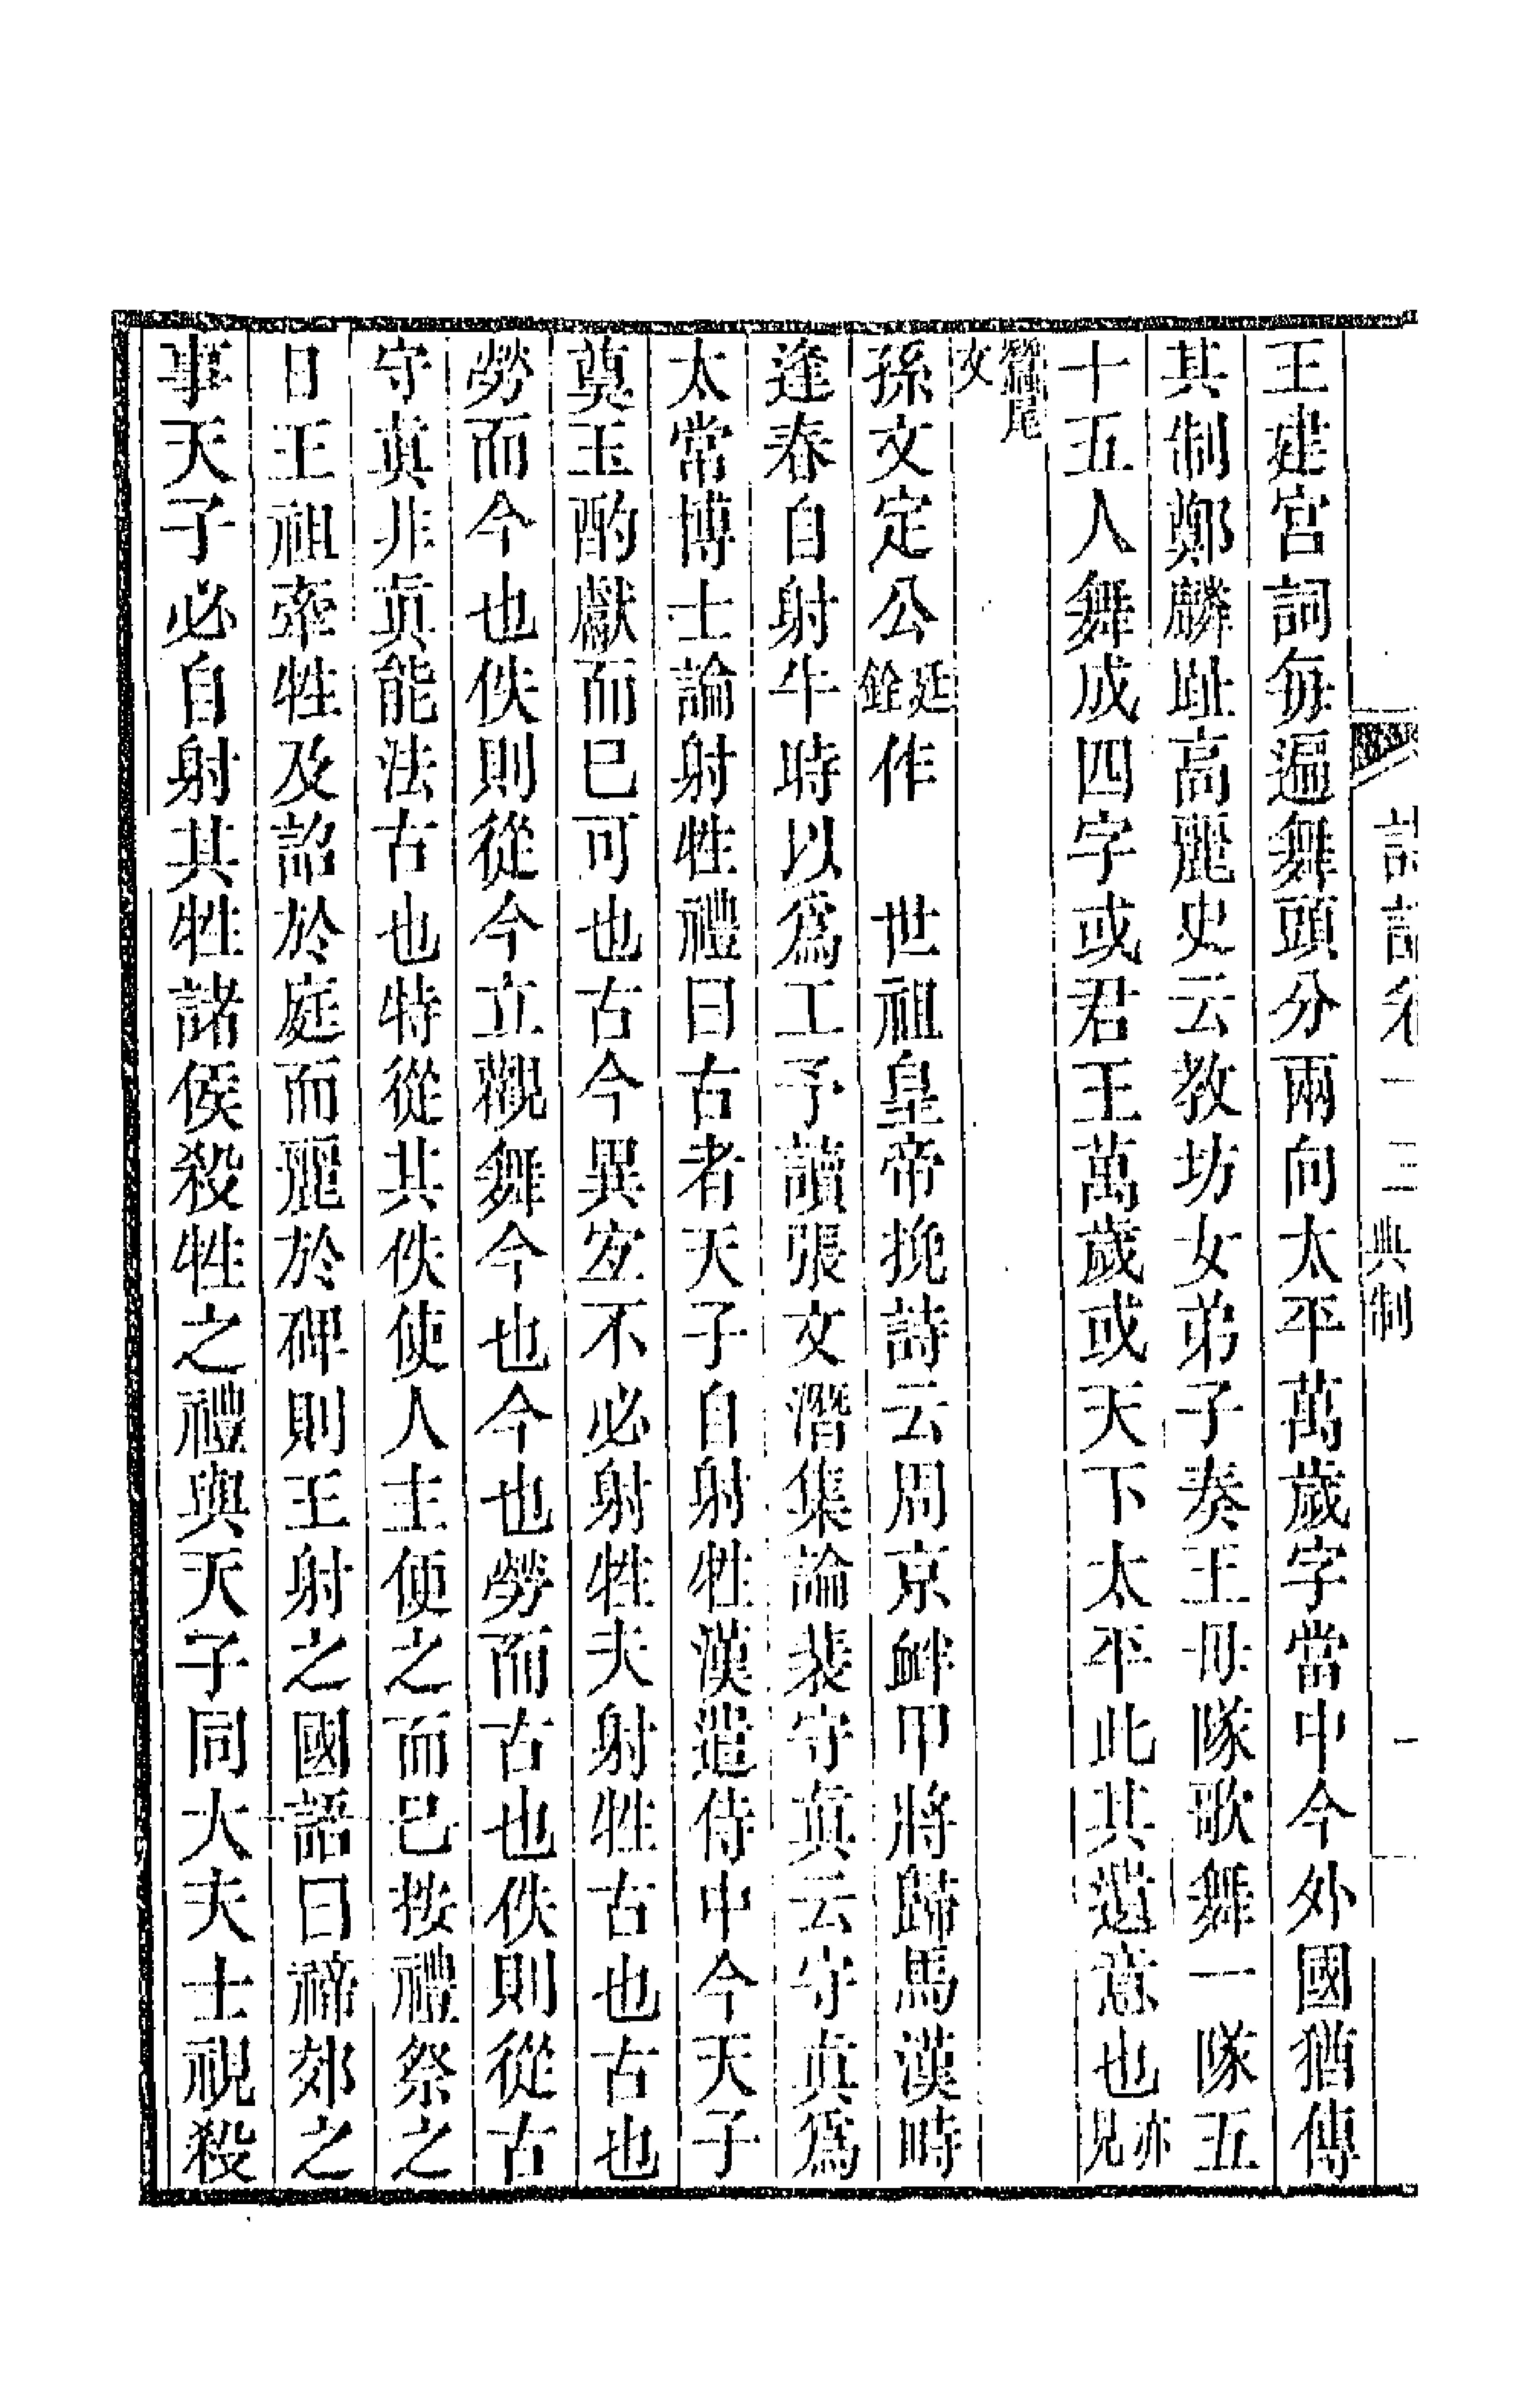 典制
王建宮詞每遍舞頭分兩向太平萬歲字當中今外國猶傳
其制鄭麟趾高麗史云教坊女弟子奏王母隊歌舞一隊五
十五人舞成四字或君王萬歲或天下太平此其遺意也亦見
蠶尾文
孫文定公廷銓作　世祖皇帝挽詩云周京衅甲將歸馬漢畤
逢春自射牛時以爲工予讀張文潛集論裴守眞云守眞爲
太常博士論射牲禮曰古者天子自射牲漢遣侍中今天子
奠玉酌獻而已可也古今異宐不必射牲夫射牲古也古也
勞而今也佚則從今立觀舞今也今也勞而古也佚則從古
守眞非眞能法古也特從其佚使人主便之而已按禮祭之
日王祖牽牲及詔於庭而麗於碑則王射之國語曰禘郊之
事天子必自射其牲諸侯殺牲之禮與天子同大夫士視殺